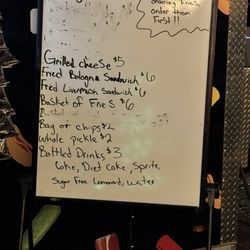 ordering Fries,
order them
First!!
Grilled cheese $5
Fried Bologna Sandwich $6
Fried Livermush Sandwich $6
Basket of Fries $6
Bag of chips $2
whole pickle $2
Bottled Drinks $3
Coke, Diet Coke, Sprite
Sugar Free Lemonaid, water